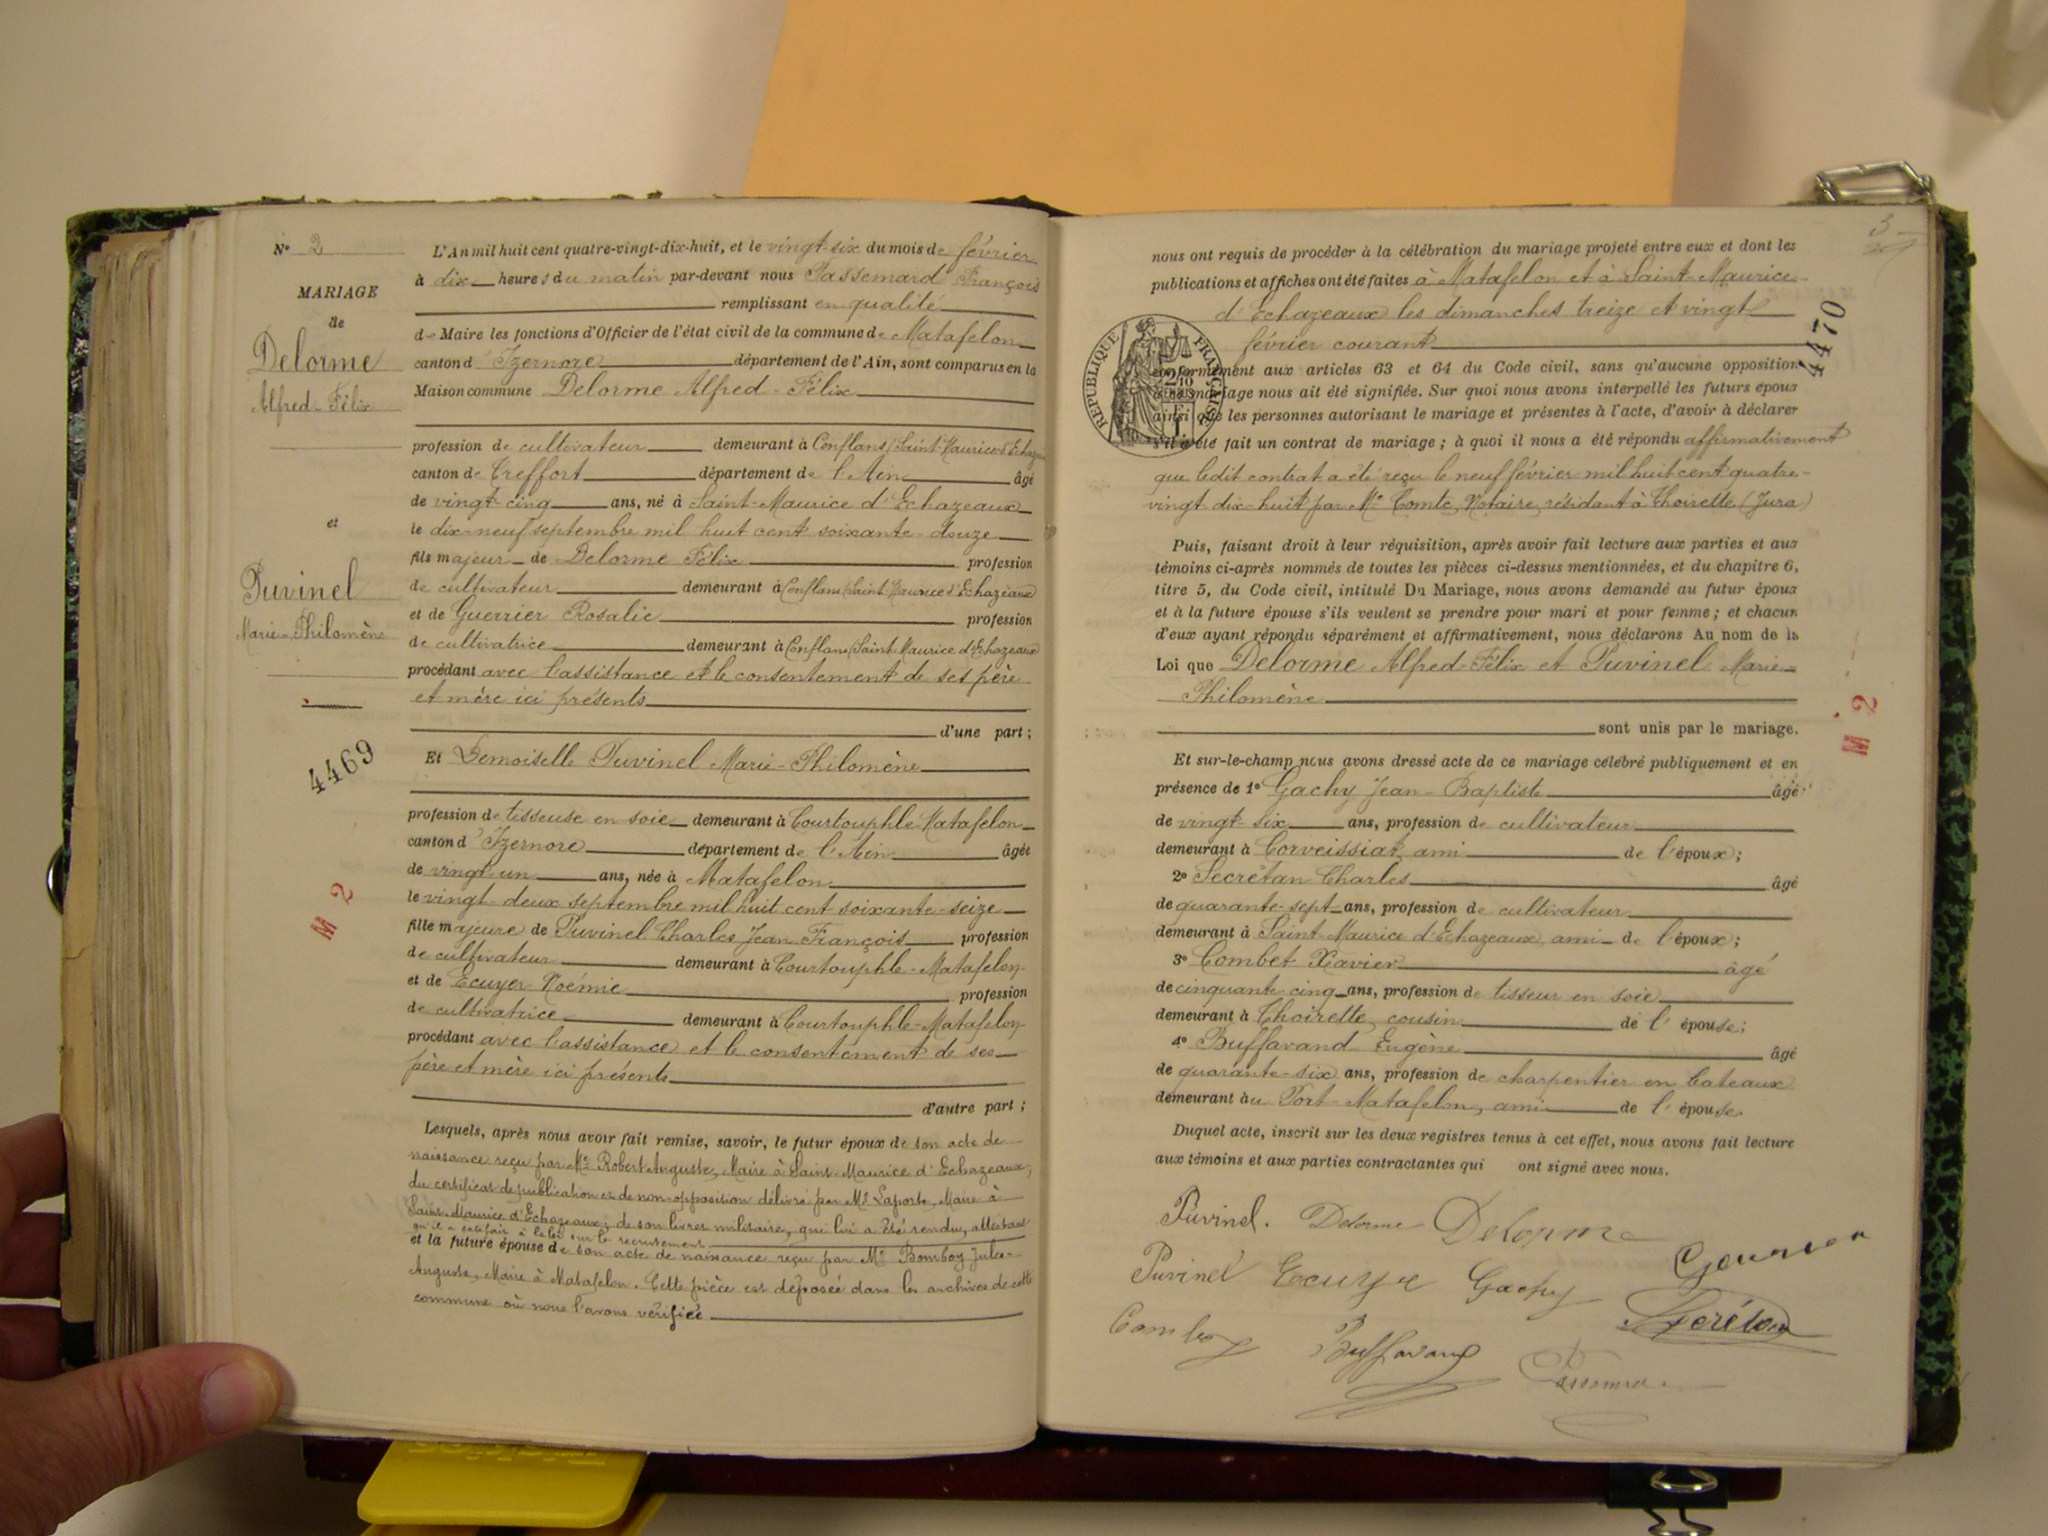 N° 2
MARIAGE
de
Delorme
Alfred-Félix
et
Puvinel
Marie-Philomène
4469
M 2
L'An mil huit cent quatre-vingt-dix-huit, et le vingt-six du mois de février
à dix heures du matin par-devant nous Passemard François
remplissant en qualité
de Maire les fonctions d'Officier de l'état civil de la commune de Matafelon
canton d'Izernore département de l'Ain, sont comparus en la
Maison commune Delorme Alfred-Félix
profession de cultivateur demeurant à Conflans (Saint-Maurice d'Echazeaux
canton de Treffort département de l'Ain âgé
de vingt-cinq ans, né à Saint-Maurice d'Echazeaux
le dix-neuf septembre mil huit cent soixante-douze
fils majeur de Delorme Félix profession
de cultivateur demeurant à Conflans (Saint Maurice d'Echazeaux
et de Guerrier Rosalie profession
de cultivatrice demeurant à Conflans (Saint Maurice d'Echazeaux
procédant avec l'assistance et le consentement de ses père
et mère ici présents
d'une part;
Et Demoiselle Puvinel Marie-Philomène
profession de tisseuse en soie demeurant à Courtouphle-Matafelon
canton d'Izernore département de l'Ain âgée
de vingt-un ans, née à Matafelon
le vingt-deux septembre mil huit cent soixante-seize
fille majeure de Puvinel Charles Jean François profession
de cultivateur demeurant à Courtouphle-Matafelon
et de Ecuyer Noémie profession
de cultivatrice demeurant à Courtouphle-Matafelon
procédant avec l'assistance et le consentement de ses
père et mère ici présents
d'autre part;
Lesquels, après nous avoir fait remise, savoir, le futur époux de son acte de
naissance reçu par Mr Robert Auguste, Maire à Saint-Maurice d'Echazeaux;
du certificat de publication et de non-opposition délivré par Mr Laporte, Maire à
Saint-Maurice d'Echazeaux; de son livret militaire, qui lui a été rendu, attestant
qu'il a satisfait à la loi sur le recrutement
et la future épouse de son acte de naissance reçu par Mr Bomboy Jules-
Auguste, Maire à Matafelon. Cette pièce est déposée dans les archives de cette
commune où nous l'avons vérifiée
3
4470
M 2
nous ont requis de procéder à la célébration du mariage projeté entre eux et dont les
publications et affiches ont été faites à Matafelon et à Saint-Maurice
d'Echazeaux les dimanches treize et vingt
février courant
RÉPUBLIQUE FRANÇAISE
conformément aux articles 63 et 64 du Code civil, sans qu'aucune opposition
à ce mariage nous ait été signifiée. Sur quoi nous avons interpellé les futurs époux
ainsi que les personnes autorisant le mariage et présentes à l'acte, d'avoir à déclarer
s'il a été fait un contrat de mariage; à quoi il nous a été répondu affirmativement
que ledit contrat a été reçu le neuf février mil huit cent quatre-
vingt dix-huit par Me Comte, Notaire, résidant à Thoirette (Jura)
Puis, faisant droit à leur réquisition, après avoir fait lecture aux parties et aux
témoins ci-après nommés de toutes les pièces ci-dessus mentionnées, et du chapitre 6,
titre 5, du Code civil, intitulé Du Mariage, nous avons demandé au futur époux
et à la future épouse s'ils veulent se prendre pour mari et pour femme; et chacun
d'eux ayant répondu séparément et affirmativement, nous déclarons Au nom de la
Loi que Delorme Alfred-Félix et Puvinel Marie-
Philomène
sont unis par le mariage.
Et sur-le-champ nous avons dressé acte de ce mariage célébré publiquement et en
présence de 1° Gachy Jean-Baptiste âgé
de vingt-six ans, profession de cultivateur
demeurant à Corveissiat, ami de l'époux;
2° Secrétan Charles âgé
de quarante-sept ans, profession de cultivateur
demeurant à Saint-Maurice d'Echazeaux, ami de l'époux;
3° Combet Xavier âgé
de cinquante cinq ans, profession de tisseur en soie
demeurant à Thoirette, cousin de l'épouse;
4° Buffavand Eugène âgé
de quarante-six ans, profession de charpentier en bateaux
demeurant au Port-Matafelon, ami de l'épouse
Duquel acte, inscrit sur les deux registres tenus à cet effet, nous avons fait lecture
aux témoins et aux parties contractantes qui ont signé avec nous.
Puvinel. Delorme Delorme
Puvinel Ecuyer Gachy
Secrétan
Buffavand